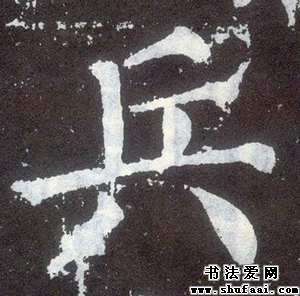 兵
书法爱网
www.shufaai.com